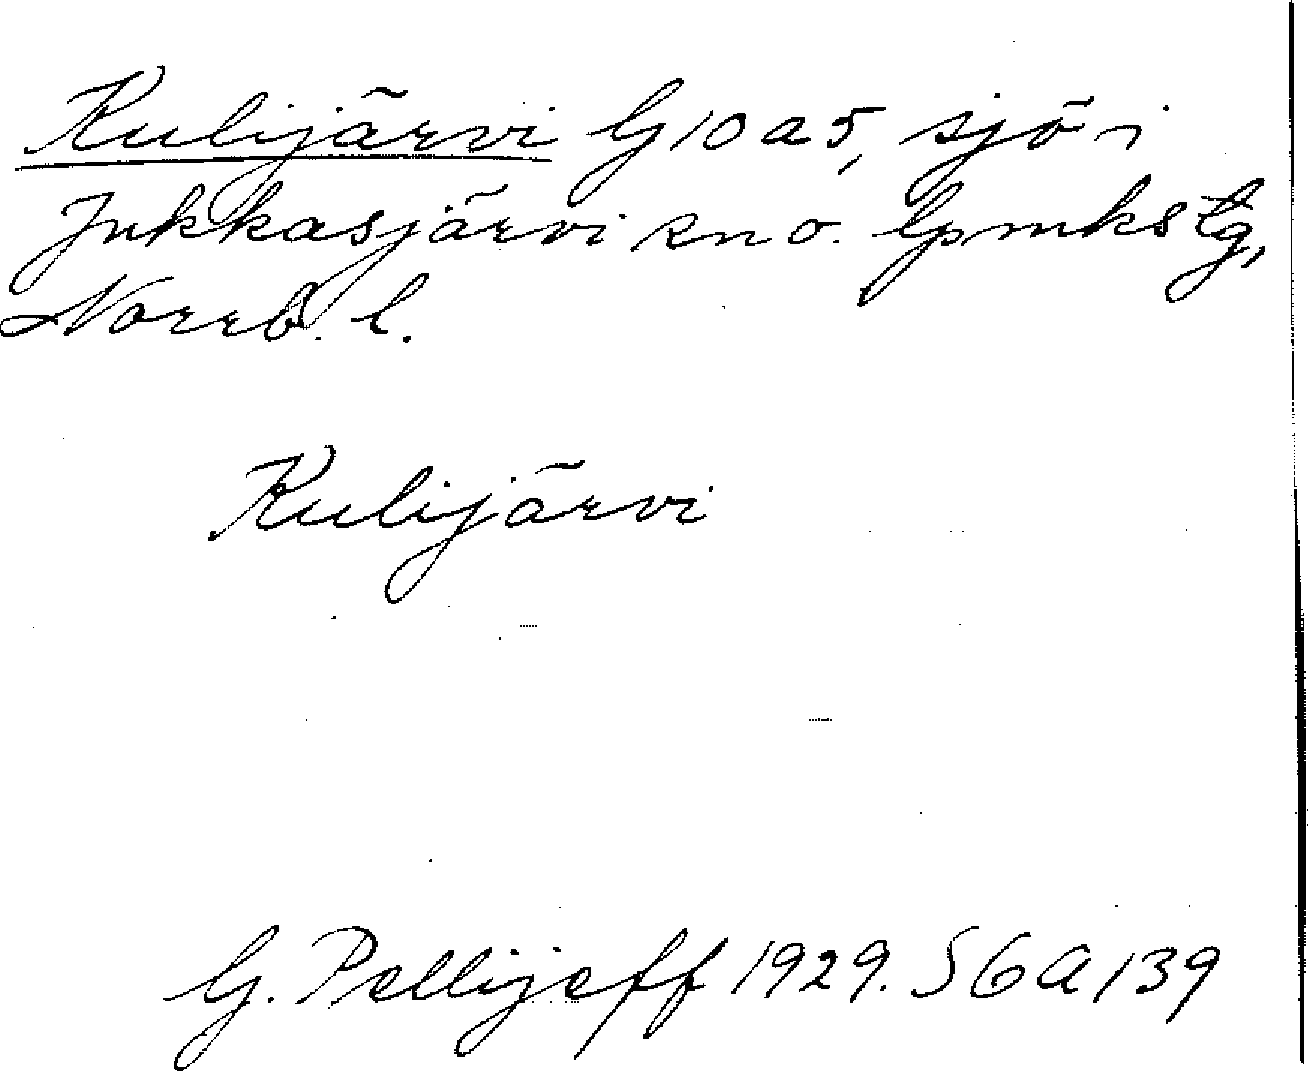 Kulijärvi G10a5, sjö i
Jukkasjärvi sn o. lpmkstg,
Norrb. l.
Kulijärvi
G. Pellijeff 1929. SGA 139